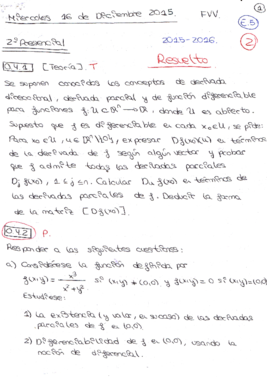 ①
Miércoles 16 de Diciembre 2015. FVV.
E.5
2ª Presencial 2015-2016. ②
Resuelto
0.4.1 [Teoría]. T
Se suponen conocidos los conceptos de derivada
direccional, derivada parcial y de función diferenciable
para funciones f: U ⊂ ℝⁿ → ℝ, donde U es abierto.
Supuesto que f es diferenciable en cada x₀ ∈ U, se pide:
Para x₀ ∈ U, u ∈ ℝⁿ\{0}, expresar Df(x₀)(u) en términos
de la derivada de f según algún vector y probar
que f admite todas las derivadas parciales
Djf(x₀), 1 ≤ j ≤ n. Calcular Du f(x₀) en términos de
las derivadas parciales de f. Deducir la forma
de la matriz [Df(x₀)].
0.4.2 P.
Responder a las siguientes cuestiones:
a) Considérese la función definida por
f(x,y) = x³/(x²+y²) si (x,y) ≠ (0,0) y f(x,y) = 0 si (x,y) = (0,0)
Estúdiese:
1) La existencia (y valor, en su caso) de las derivadas
parciales de f en (0,0).
2) Diferenciabilidad de f en (0,0), usando la
noción de diferencial.